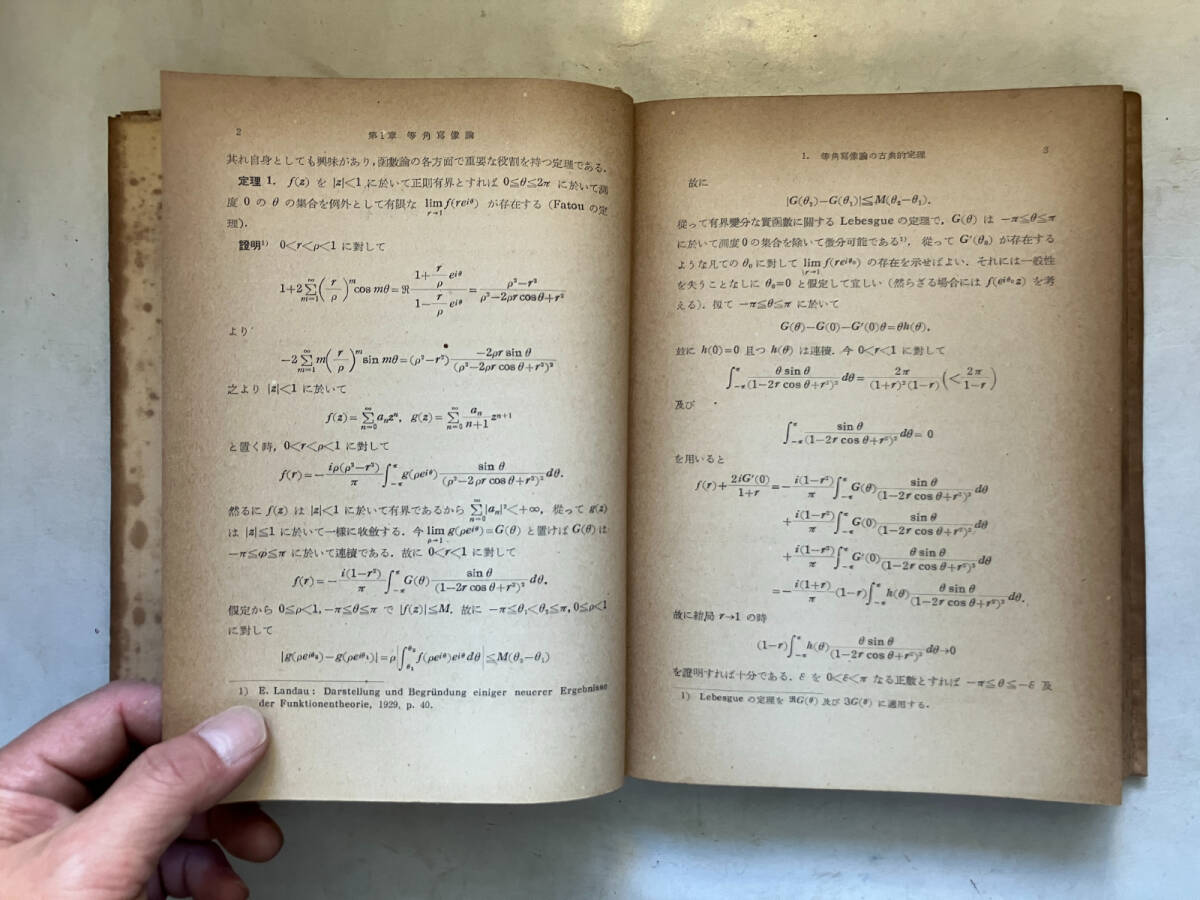 2
第1章 等角寫像論
其れ自身としても興味があり,函數論の各方面で重要な役割を持つ定理である.
定理 1. f(z) を |z|<1 に於いて正則有界とすれば 0≦θ≦2π に於いて測
度 0 の θ の集合を例外として有限な lim_{r→1} f(re^{iθ}) が存在する (Fatou の定
理).
證明¹⁾ 0<r<ρ<1 に對して
1+2∑_{m=1}^{∞}(r/ρ)^m cos mθ=ℜ (1+(r/ρ)e^{iθ})/(1−(r/ρ)e^{iθ}) = (ρ²−r²)/(ρ²−2ρr cosθ+r²)
より
−2∑_{m=1}^{∞} m(r/ρ)^m sin mθ=(ρ²−r²) (−2ρr sin θ)/(ρ²−2ρr cos θ+r²)²
之より |z|<1 に於いて
f(z)=∑_{n=0}^{∞} a_n z^n, g(z)=∑_{n=0}^{∞} a_n/(n+1) z^{n+1}
と置く時, 0<r<ρ<1 に對して
f(r)=−iρ(ρ²−r²)/π ∫_{−π}^{π} g(ρe^{iθ}) sin θ/(ρ²−2ρr cos θ+r²)² dθ.
然るに f(z) は |z|<1 に於いて有界であるから ∑_{n=0}^{∞}|a_n|²<+∞, 從って g(z)
は |z|≦1 に於いて一樣に收斂する. 今 lim_{ρ→1} g(ρe^{iθ})=G(θ) と置けば G(θ) は
−π≦φ≦π に於いて連續である. 故に 0<r<1 に對して
f(r)=−i(1−r²)/π ∫_{−π}^{π} G(θ) sin θ/(1−2r cos θ+r²)² dθ.
假定から 0≦ρ<1, −π≦θ≦π で |f(z)|≦M. 故に −π≦θ₁<θ₂≦π, 0≦ρ<1
に對して
|g(ρe^{iθ₂})−g(ρe^{iθ₁})|=ρ|∫_{θ₁}^{θ₂} f(ρe^{iθ})e^{iθ}dθ|≦M(θ₂−θ₁)
1) E. Landau: Darstellung und Begründung einiger neuerer Ergebnisse
der Funktionentheorie, 1929, p. 40.
1. 等角寫像論の古典的定理
3
故に
|G(θ₂)−G(θ₁)|≦M(θ₂−θ₁).
從って有界變分な實函數に關する Lebesgue の定理で, G(θ) は −π≦θ≦π
に於いて測度 0 の集合を除いて微分可能である¹⁾, 從って G′(θ₀) が存在する
ような凡ての θ₀ に對して lim_{r→1} f(re^{iθ₀}) の存在を示せばよい. それには一般性
を失うことなしに θ₀=0 と假定して宜しい (然らざる場合には f(e^{iθ₀}z) を考
える). 扨て −π≦θ≦π に於いて
G(θ)−G(0)−G′(0)θ=θh(θ).
茲に h(0)=0 且つ h(θ) は連續. 今 0<r<1 に對して
∫_{−π}^{π} θ sin θ/(1−2r cos θ+r²)² dθ= 2π/((1+r)²(1−r)) (<2π/(1−r))
及び
∫_{−π}^{π} sin θ/(1−2r cos θ+r²)² dθ= 0
を用いると
f(r)+2iG′(0)/(1+r)=−i(1−r²)/π ∫_{−π}^{π} G(θ) sin θ/(1−2r cos θ+r²)² dθ
+i(1−r²)/π ∫_{−π}^{π} G(0) sin θ/(1−2r cos θ+r²)² dθ
+i(1−r²)/π ∫_{−π}^{π} G′(0) θ sin θ/(1−2r cos θ+r²)² dθ
=−i(1+r)/π (1−r)∫_{−π}^{π} h(θ) θ sin θ/(1−2r cos θ+r²)² dθ.
故に結局 r→1 の時
(1−r)∫_{−π}^{π} h(θ) θ sin θ/(1−2r cos θ+r²)² dθ→0
を證明すれば十分である. ε を 0<ε<π なる正數とすれば −π≦θ≦−ε 及
1) Lebesgue の定理を ℜG(θ) 及び ℑG(θ) に適用する.